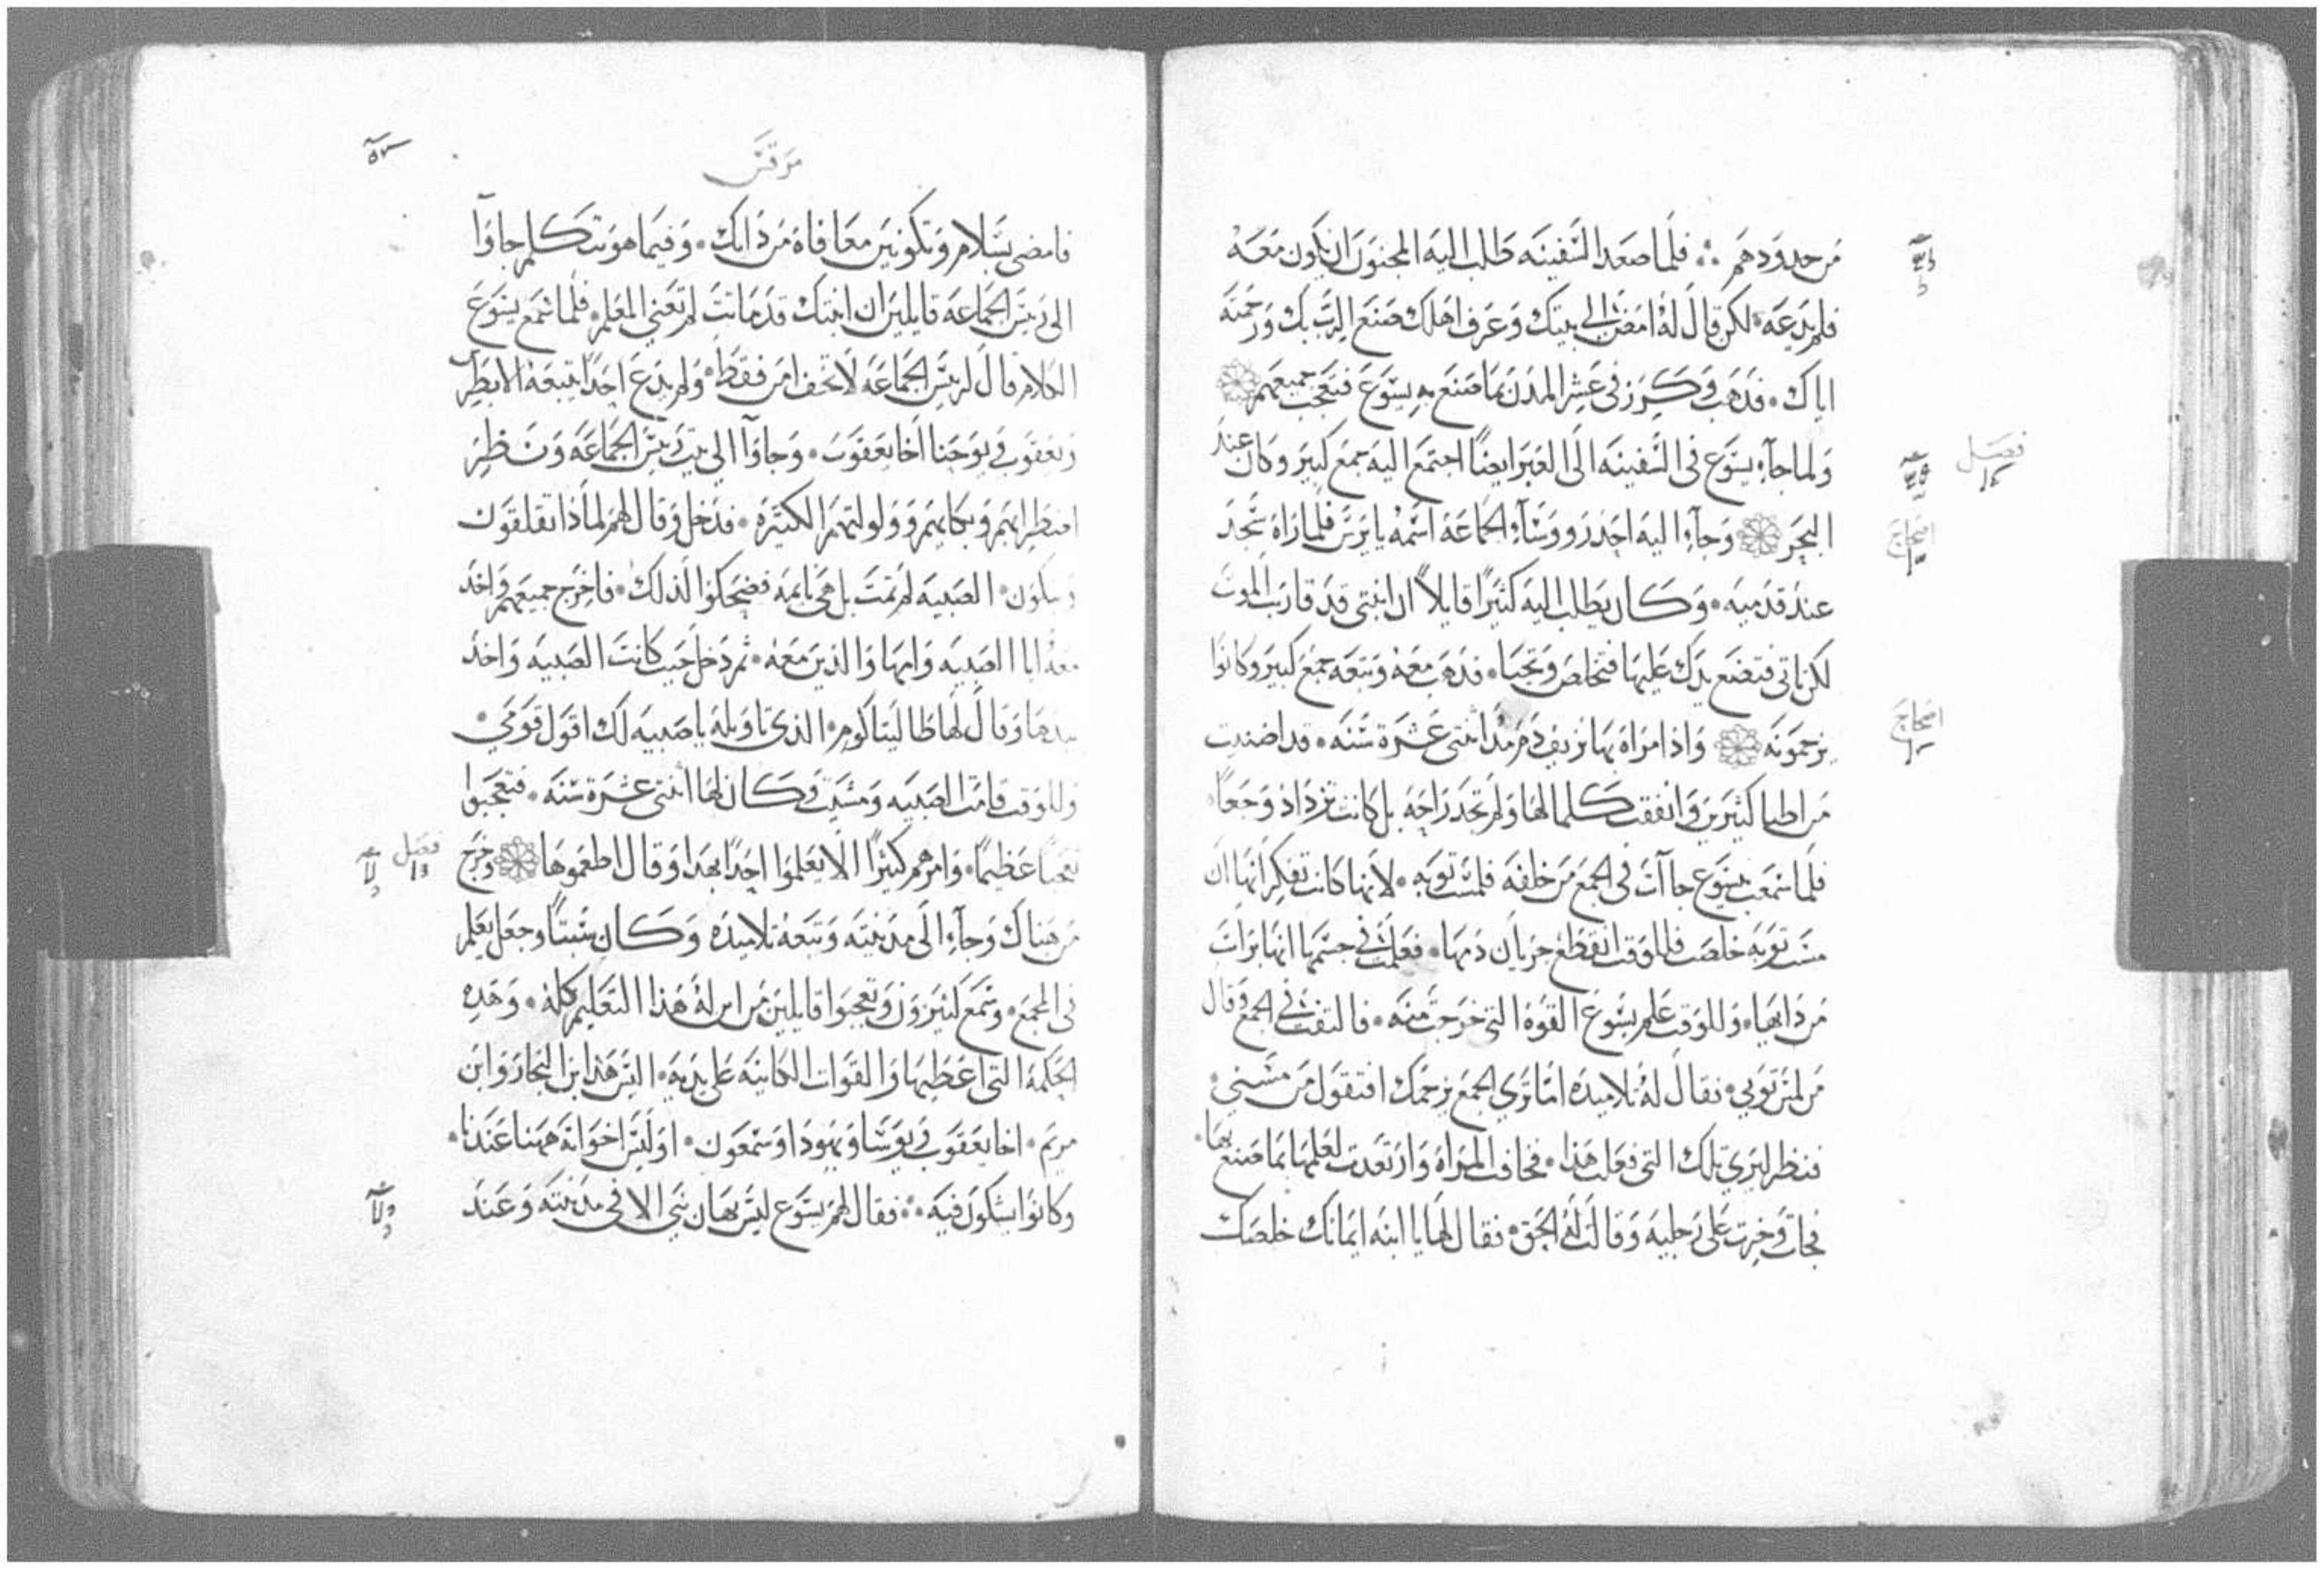 من حدودهم ۞ فلما صعد السفينه طلب اليه المجنون ان يكون معه
فلم يدعه لكن قال له امض الي بيتك وعرف اهلك صنع الرب بك ورحمته
اياك • فذهب وكرز في عشر المدن بما صنع به يسوع فتعجب جميعهم
فصل
ولما جاء يسوع في السفينه الى العبر ايضًا اجتمع اليه جمع كبير وكان عند
اصحاح
البحر وجاء اليه احد رووسآء الجماعه اسمه يايرس فلما راه سجد
عند قدميه • وكان يطلب اليه كثيرًا قايلاً ان ابنتي قد قاربت الموت
لكن تاتي فتضع يدك عليها فتخلص وتحيا • فذهب معه وتبعه جمع كبير وكانوا
اصحاح
يزحمونه واذا امراه بها نزيف دم مذ اثنتى عشرة سنه • قد اضنيت
من اطبا كثيرين وانفقت كلما لها ولم تجد راحه بل كانت تزداد وجعًا
فلما سمعت بيسوع جاآت في الجمع من خلفه فلمست ثوبه • لانها كانت تفكر انها ان
مست ثوبه خلصت فللوقت انقطع جريان دمها • فعلمت في جسمها انها برات
من دايها • وللوقت علم يسوع القوه التي خرجت منه • فالتفت في الجمع وقال
من لمس ثوبي • فقال له تلاميذه اما ترى الجمع يزحمك افتقول من مسني •
فنظر ليرى تلك التي فعلت هذا • فخافت المراه وارتعدت لعلمها بما صنع بها •
فجات وخرت على رجليه وقالت له الحق • فقال لها يا ابنه ايمانك خلصك
مرقس
فامضى بسلام وتكونين معافاة من دايك • وفيما هو يتكلم جاوآ
الى رييس الجماعه قايلين ان ابنتك قد ماتت لم تعني المعلم • فلما سمع يسوع
الكلام قال لرييس الجماعه لا تخف امن فقط • ولم يدع احدًا يتبعه الا بطرس
ويعقوب ويوحنا اخا يعقوب • وجاوآ الى بيت رييس الجماعه ونظر
اضطرابهم وبكايهم وولولتهم الكثيره • فدخل وقال لهم لماذا تقلقون
وتبكون • الصبيه لم تمت بل هي نايمه فضحكوا لذلك • فاخرج جميعهم واخذ
معه ابا الصبيه وامها والذين معه • ثم دخل حيث كانت الصبيه واخذ
بيدها وقال لها طاليثا كوم • الذي تاويله يا صبيه لك اقول قومي •
وللوقت قامت الصبيه ومشيت وكان لها اثنتى عشرة سنه • فتعجبوا
فصل
تعجبًا عظيمًا • وامرهم كثيرًا الا يعلموا احدًا بهذا وقال اطعموها وخرج
من هناك وجاء الى مدينته وتبعه تلاميذه وكان سبتًا وجعل يعلم
في المجمع • وسمع كثيرون وتعجبوا قايلين من اين له هذا التعليم كله • وهذه
الحكمه التي اعطيها والقوات الكاينه على يديه • اليس هذا ابن النجار وابن
مريم • اخا يعقوب ويوسا ويهودا وسمعون • اوليس اخواته ههنا عندنا •
وكانوا يشكون فيه ۞ فقال لهم يسوع ليس يهان نبي الا في مدينته وعند